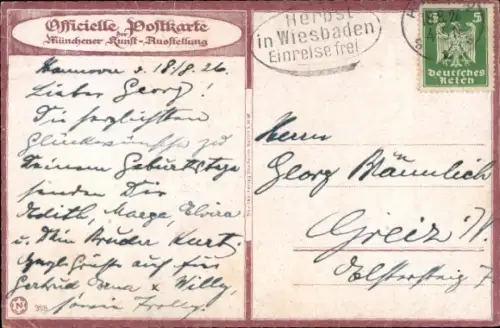 Officielle Postkarte
der
Münchener Kunst-Ausstellung
Herbst
in Wiesbaden
Einreise frei
5 5
Deutsches
Reich
Hannover d. 18/8.26.
Lieber Georg!
Die herzlichsten
Glückwünsche zu
Deinem Geburtstage
senden Dir
Edith, Marga, Elvira
u. Dein Bruder Kurt.
Grüße auch für
Gertrud u. Willy,
sowie
Herrn
Georg Bräunlich
Greiz i/V.
Elstersteig 7